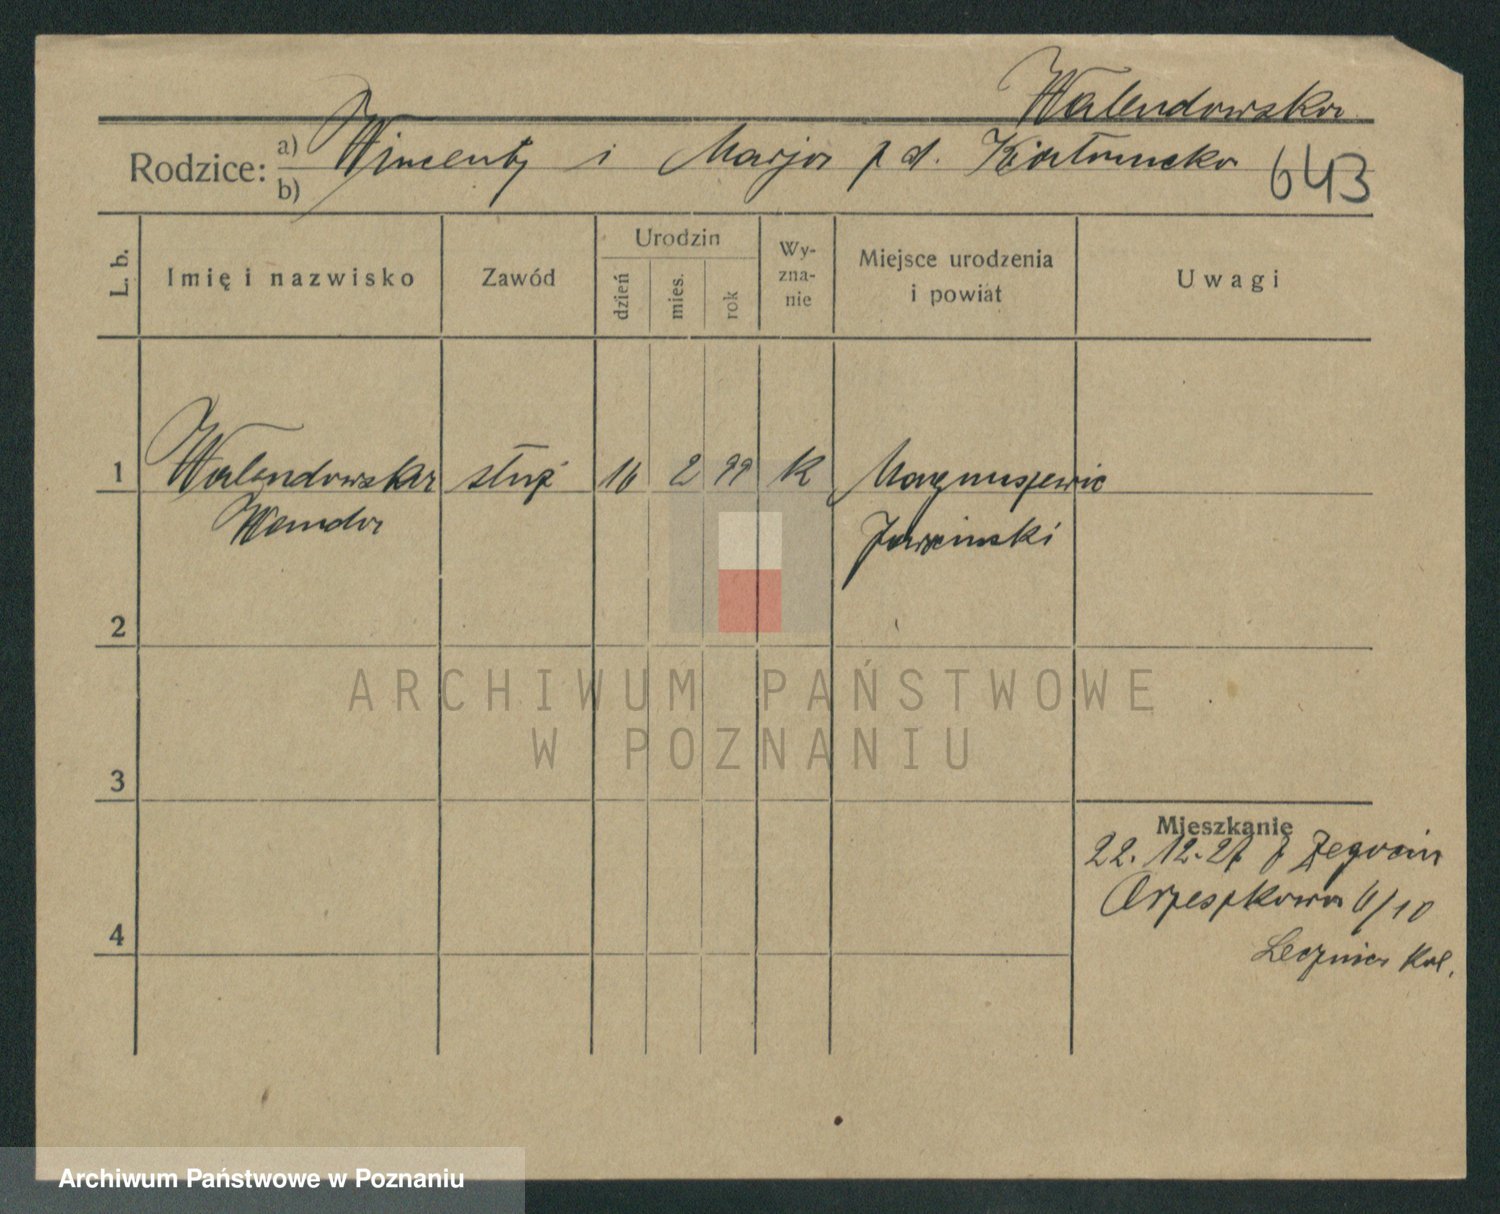 Walendowska
Rodzice: a) Wincenty i Marja z d.
b)
643
L. b.
Imię i nazwisko
Zawód
Urodzin
dzień
mies.
rok
Wy-
zna-
nie
Miejsce urodzenia
i powiat
Uwagi
1
Walendowska służ 16 2 99 K Magnuszewic
Wanda Jarocinski
2
3
4
Mieszkanie
22. 12. 27 z
Orzeszkowa 6/10
Lecznica Kol.
ARCHIWUM PAŃSTWOWE
W POZNANIU
Archiwum Państwowe w Poznaniu